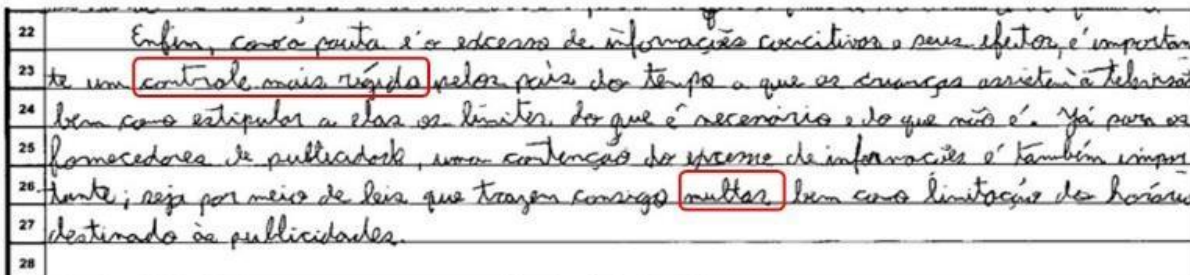 22 Enfim, como a pauta é o excesso de informações coercitivas e seus efeitos, é importan
23 te um controle mais rígido pelos pais do tempo a que as crianças assistem à televisão
24 bem como estipular a elas os limites do que é necessário e do que não é. Já para os
25 fornecedores de publicidade, uma contenção do excesso de informações é também impor
26 tante; seja por meio de leis que trazem consigo multas, bem como limitação do horário
27 destinado às publicidades.
28